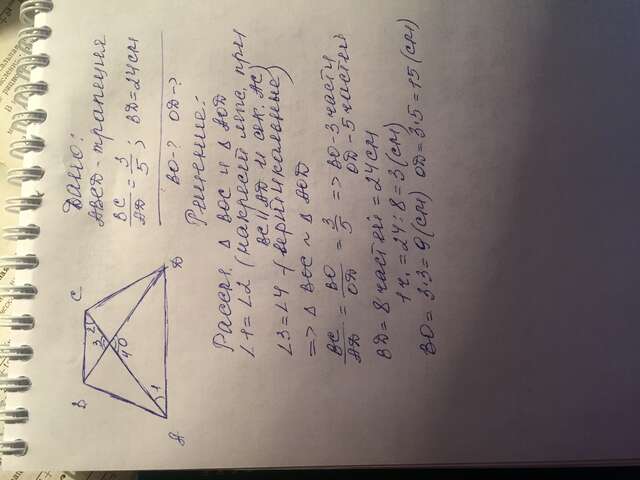 B
C
2
3
4
O
1
A
D
Дано:
ABCD - трапеция
BC/AD = 3/5; BD = 24 см
BO - ? OD - ?
Решение:
Рассм. △ BOC и △ AOD
∠1 = ∠2 (накрест леж. при
BC || AD и сек. AC)
∠3 = ∠4 - (вертикальные)
=> △ BOC ~ △ AOD
BC/AD = BO/OD = 3/5 => BO - 3 части
OD - 5 частей
BD = 8 частей = 24 см
1 ч. = 24 : 8 = 3 (см)
BO = 3·3 = 9 (см) OD = 3·5 = 15 (см)